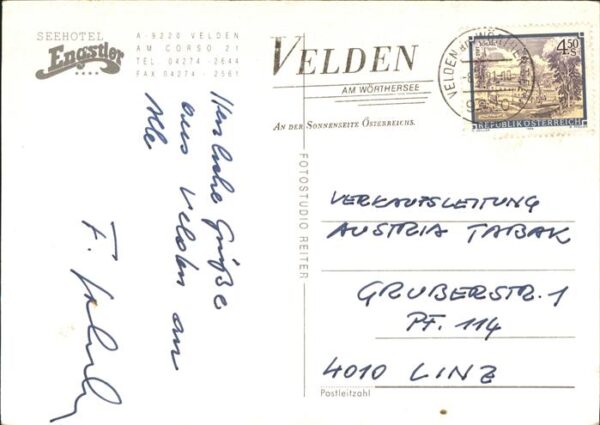 SEEHOTEL
Engstler
A-9220 VELDEN
AM CORSO 21
TEL 04274-2644
FAX 04274-2561
VELDEN
AM WÖRTHERSEE
AN DER SONNENSEITE ÖSTERREICHS.
4.50
S
REPUBLIK ÖSTERREICH
FOTOSTUDIO REITER
Herzliche Grüße
aus Velden an
Alle
F.
VERKAUFSLEITUNG
AUSTRIA TABAK
GRUBERSTR. 1
PF. 114
4010 LINZ
Postleitzahl